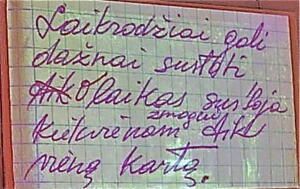 Laikrodžiai gali
dažnai sustoti
O laikas sustoja
kiekvienam žmogui tik
vieną kartą.